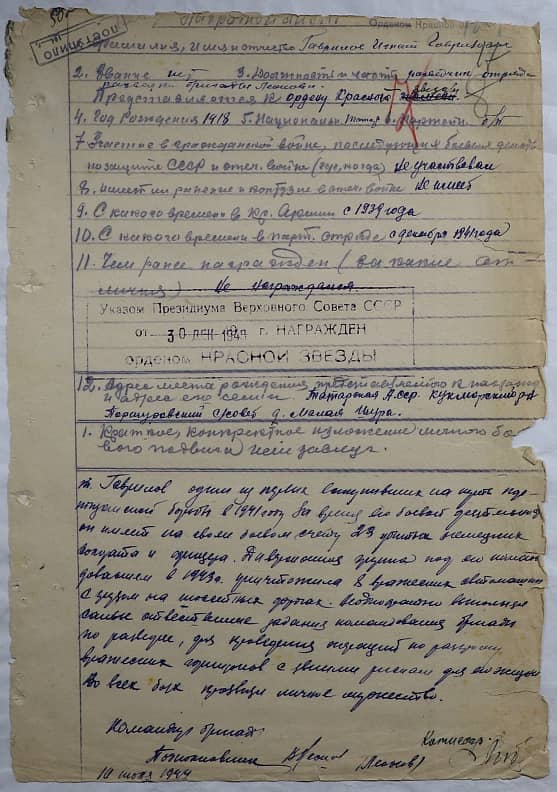 Наградной лист
Орденом Красной
1. Фамилия, имя и отчество Гаврилов Игнат Гаврилович
2. Звание нет 3. Должность и часть разведчик отряда
разведки бригады Леонова
Представляется к ордену Красного
4. Год рождения 1918 5. Национальн. татар 6. Партийн. б/п
7. Участие в гражданской войне, последующих боевых действ.
по защите СССР и отеч. войне (где, когда) Не участвовал
8. Имеет ли ранение и контузие в отеч. войне Не имеет
9. С какого времени в Кр. Армии с 1939 года
10. С какого времени в парт. отряде с декабря 1941 года
11. Чем ранее награжден (за какие от-
личия) Не награждался
Указом Президиума Верховного Совета СССР
от 30 ДЕК 1948 г. НАГРАЖДЕН
орденом КРАСНОЙ ЗВЕЗДЫ
12. Адрес места рождения представляемого к наград
и адрес его семьи Татарская АССР Кукморский р-н
совет д. Малая Чура.
1. Краткое, конкретное изложение личного бо-
вого подвига или заслуг.
т. Гаврилов один из первых вступивших на путь пар-
тизанской борьбы в 1941 году. За время его боевой деятельности
он имеет на своем боевом счету 23 убитых немецких
солдата и офицера. Диверсионная группа под его коман-
дованием в 1943 г. уничтожила 8 вражеских автомашин
с грузом на шоссейных дорогах. Неоднократно выполнял
самые ответственные задания командования бригады
по разведке, для проведения операций по разгрому
вражеских гарнизонов с явным риском для его жизни
Во всех боях проявил личное мужество.
Командир бригады
Комиссар
Подполковник (Леонов)
10 июля 1944